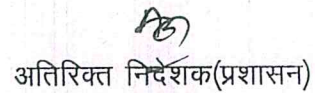 अतिरिक्त निर्देशक(प्रशासन)